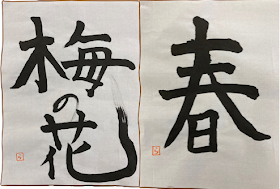 梅の花
春